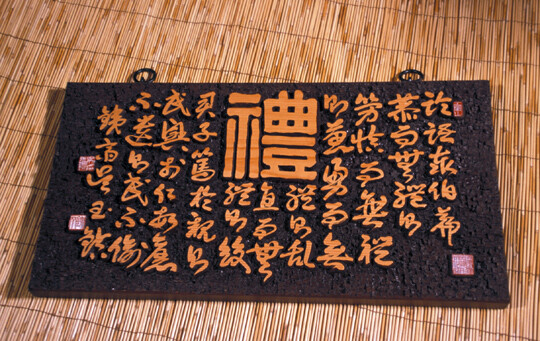 禮
論語泰伯
恭而無禮則
勞慎而無禮
則葸勇而無
禮則乱
直而無
禮則絞
君子篤於親則
民興於仁故舊
不遺則民不偷